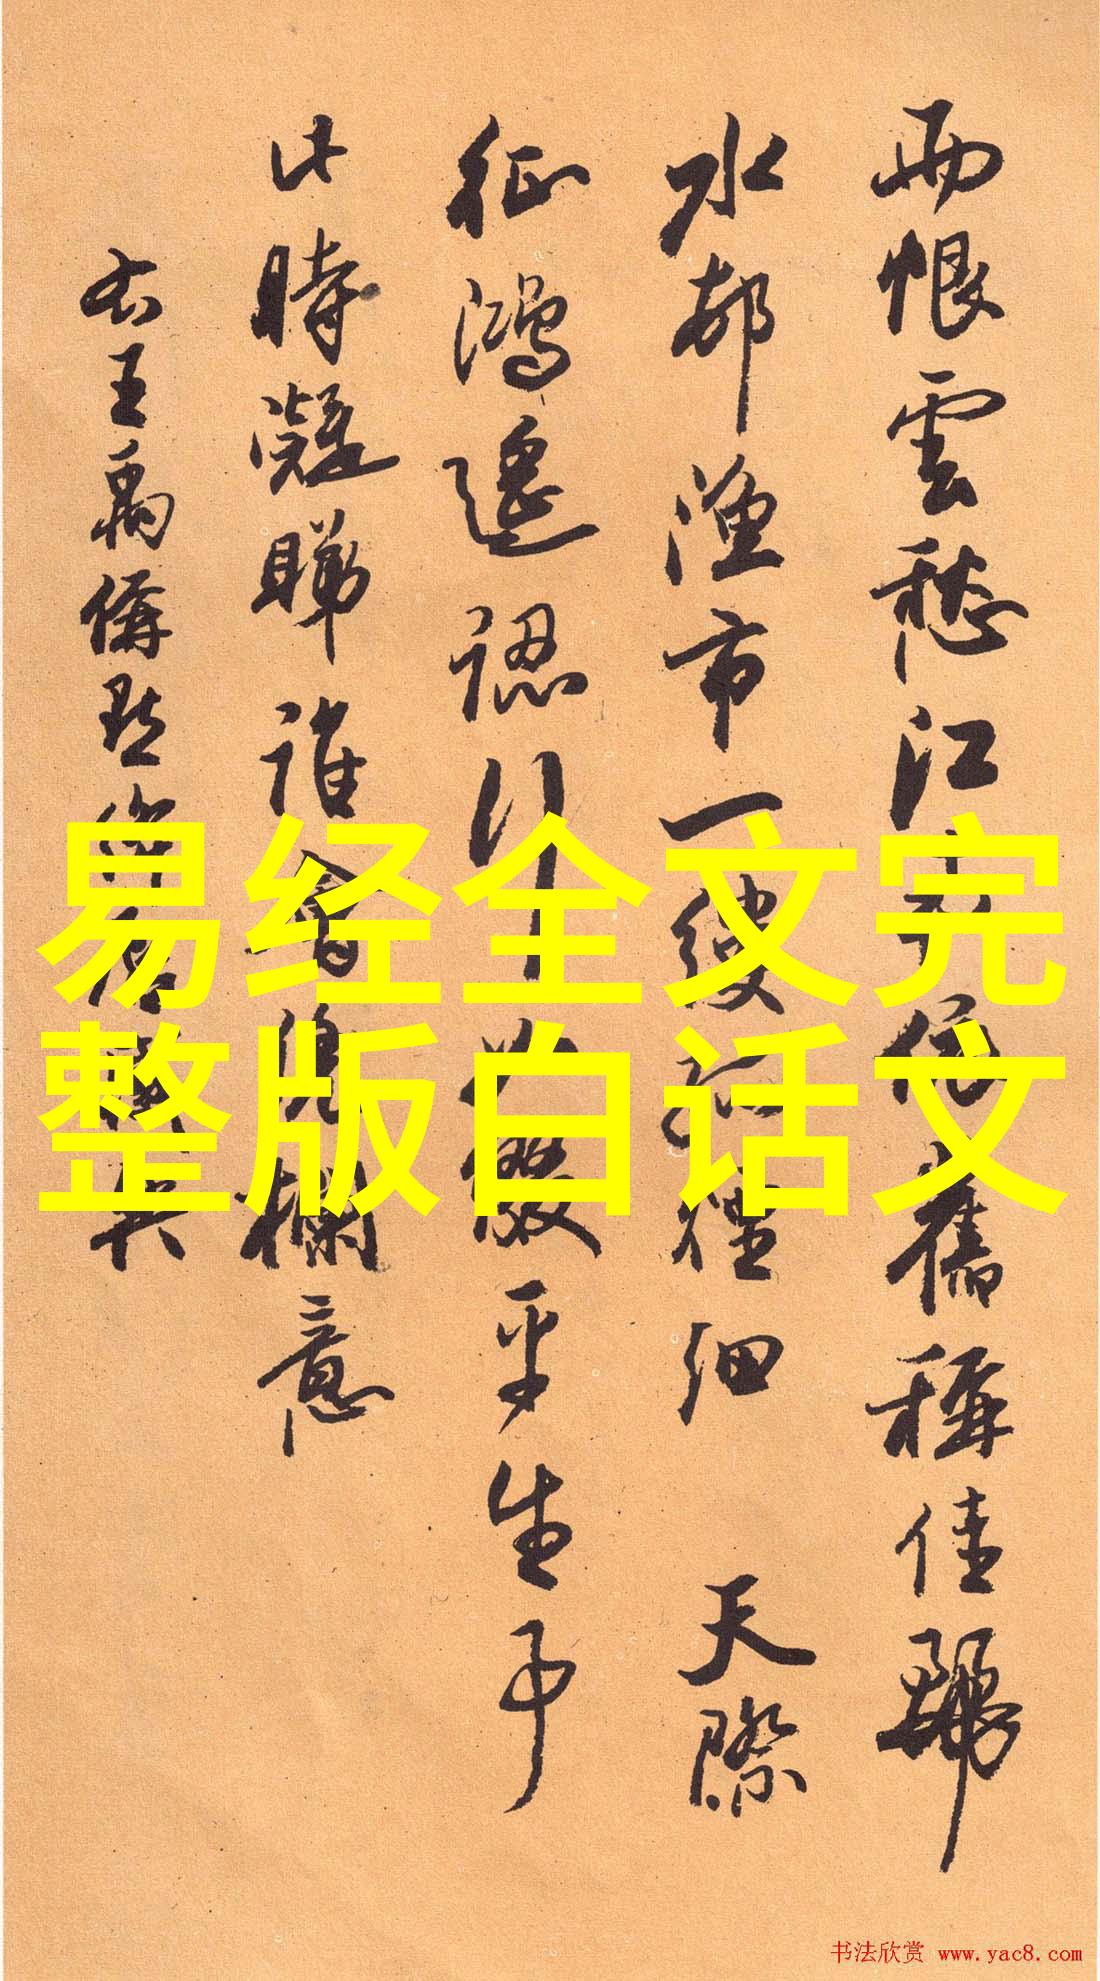 雨恨雲愁江南依舊稱佳麗
水邨漁市一縷孤煙細 天際
征鴻遙認行如綴平生事
此時凝睇誰會凭欄意
右王禹偁點絳唇感興
易经全文完
整版白话文
书法欣赏 www.yac8.com